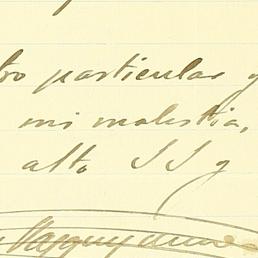 tro particular q
mi molestia,
alto S S q